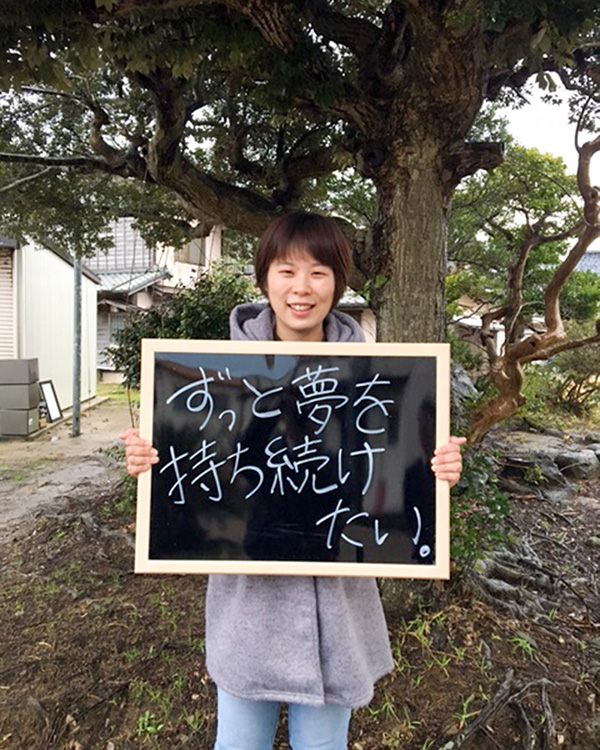 ずっと夢を
持ち続け
たい。